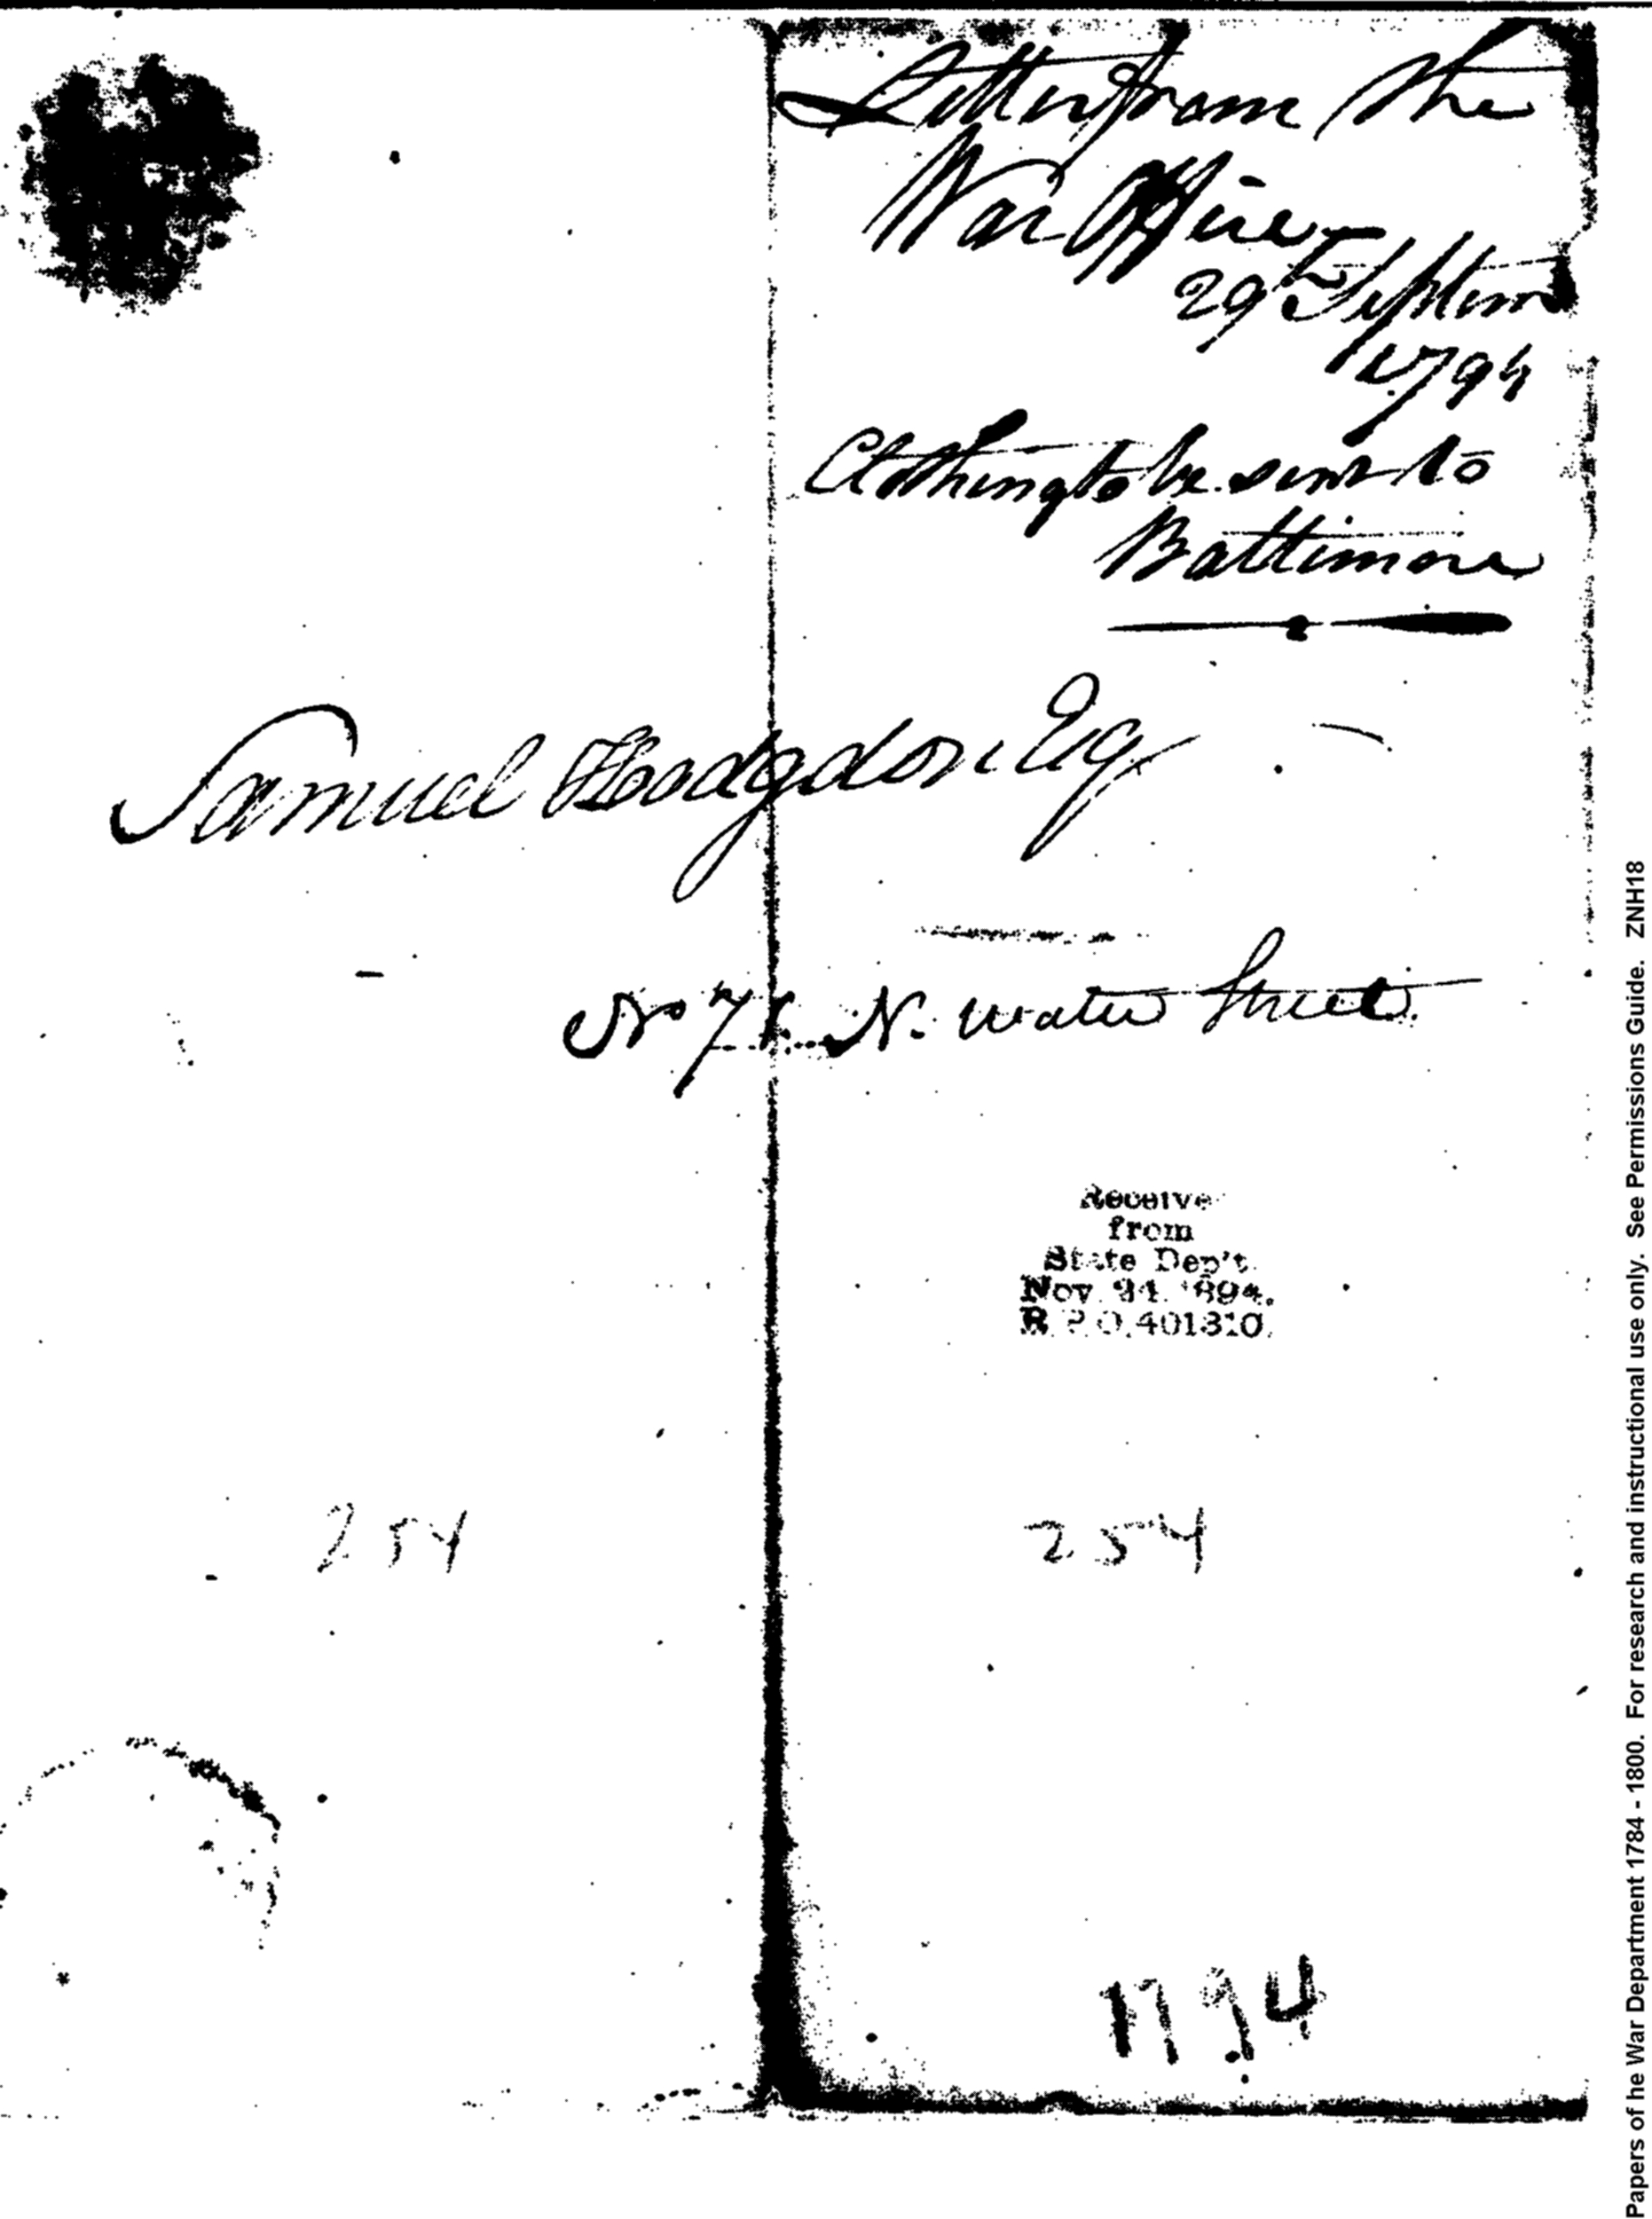 Letter from the
War Office
29th Septem
1794
Clothing to be sent to
Baltimore
Samuel Hodgdon Esq
No 71. N. water Street.
Receive
from
State Dep't.
Nov 1894.
R.P.O. 401310.
254
254
1794
Papers of he War Department 1784 - 1800. For research and instructional use only. See Permissions Guide. ZNH18